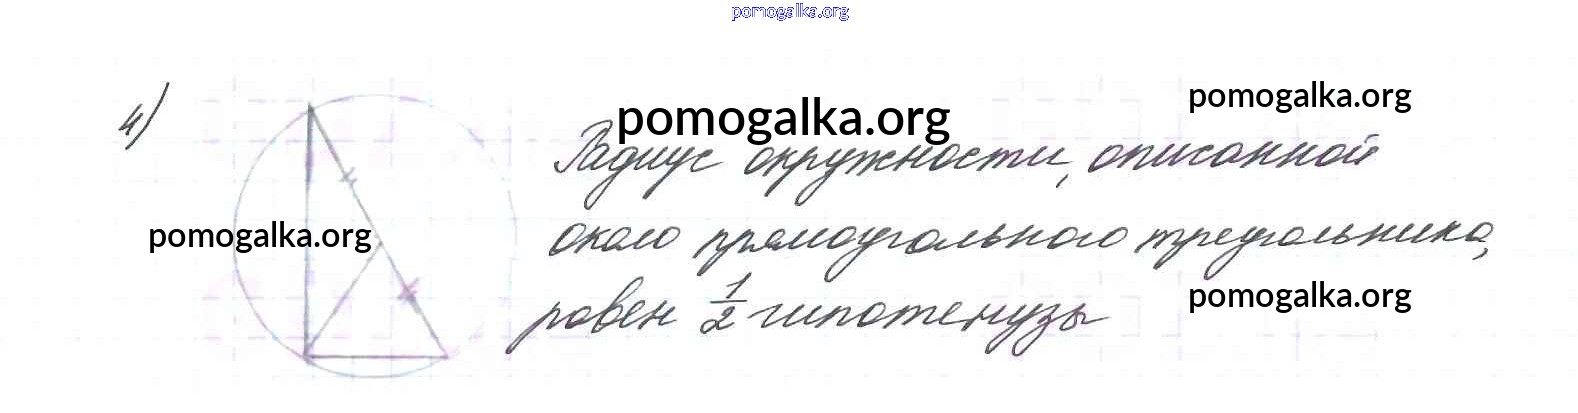 pomogalka.org
4)
pomogalka.org
pomogalka.org
Радиус окружности, описанной
pomogalka.org
около прямоугольного треугольника,
pomogalka.org
равен 1/2 гипотенузы